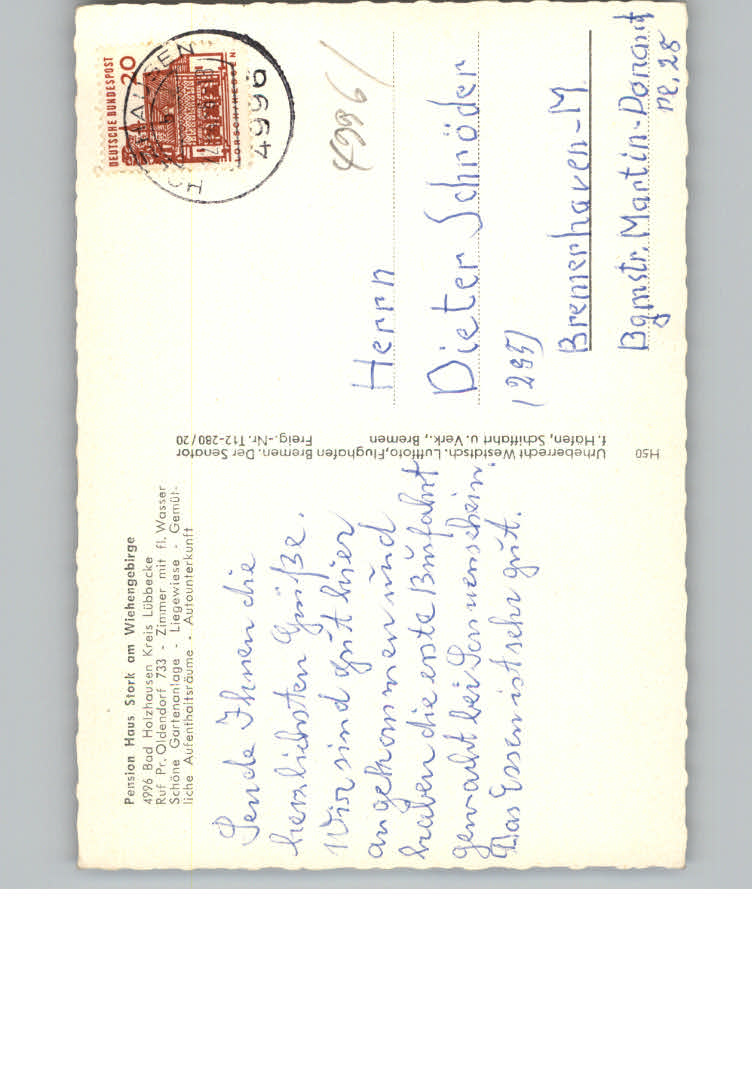 Pension Haus Stork am Wiehengebirge
4996 Bad Holzhausen Kreis Lübbecke
Ruf Pr. Oldendorf 733 - Zimmer mit fl. Wasser
Schöne Gartenanlage - Liegewiese - Gemüt-
liche Aufenthaltsräume - Autounterkunft
Sende Ihnen die
herzlichsten Grüße.
Wir sind gut hier
angekommen und
haben die erste
gemacht bei Sonnenschein.
Das Essen ist sehr gut.
Urheberrecht Westdtsch. Luftfoto, Flughafen Bremen. Der Senator
f. Häfen, Schiffahrt u. Verk., Bremen Freig.-Nr. T12-280/20
H50
DEUTSCHE BUNDESPOST
20
LORSCH/HESSEN
4996
4996/
Herrn
Dieter Schröder
(285)
Bremerhaven-M.
Bgmstr. Martin-Donandt
28